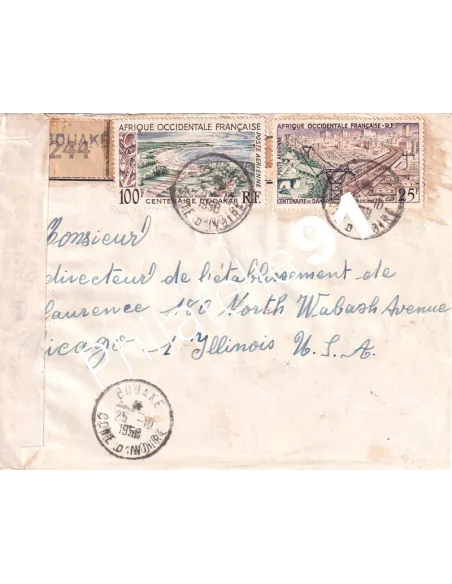 BOUAKÉ
244
AFRIQUE OCCIDENTALE FRANÇAISE
POSTE AÉRIENNE
100F
CENTENAIRE DE DAKAR
R.F.
AFRIQUE OCCIDENTALE FRANÇAISE-R.F.
CENTENAIRE DE DAKAR
25F
Monsieur
directeur de l'établissement de
Laurence 180 North Wabash Avenue
icago - 1 Illinois U.S.A.
BOUAKE
25 -10
1958
COTE D'IVOIRE
Philatélie 91